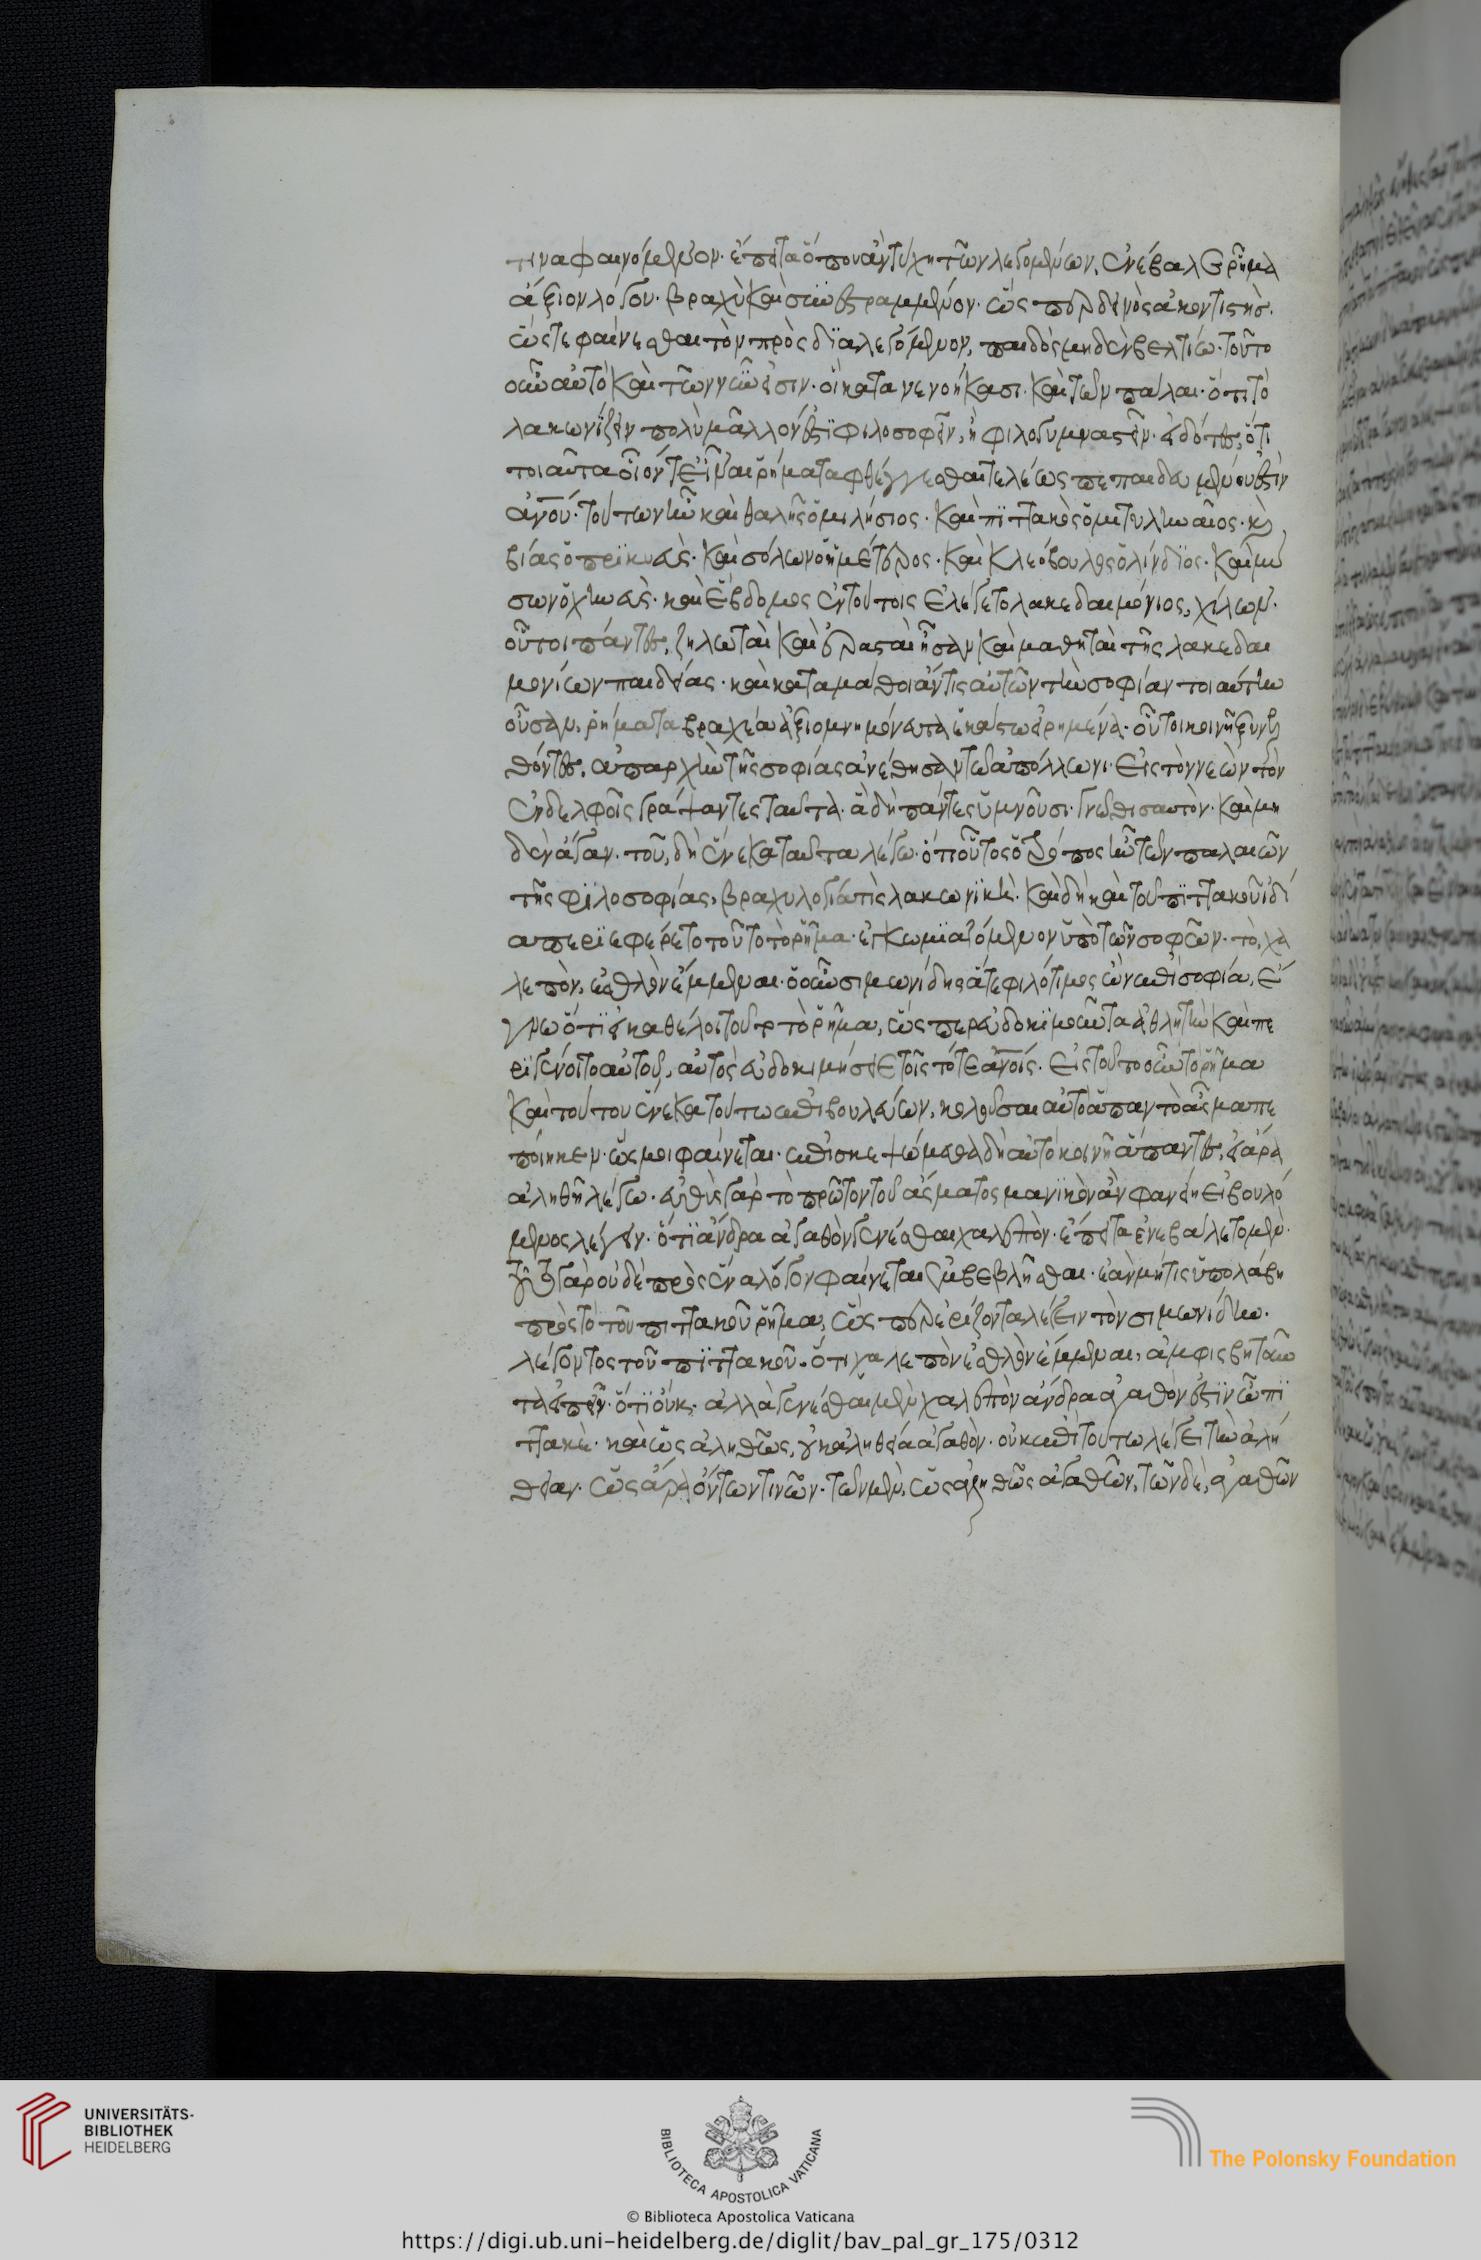 τινα φαινόμενον· ἔπειτα ὅπου ἂν τύχη τῶν λεγομένων, ἐνέβαλε ῥῆμα
ἄξιον λόγου· βραχὺ καὶ συνεστραμμένον· ὥσπερ δεινὸς ἀκοντιστής·
ὥστε φαίνεσθαι τὸν προσδιαλεγόμενον, παιδὸς μηδὲν βελτίω· τοῦτο
οὖν αὐτὸ καὶ τῶν νῦν εἰσὶν· οἳ κατανενοήκασι· καὶ τῶν πάλαι· ὅτι τὸ
λακωνίζειν πολὺ μᾶλλόν ἐστι φιλοσοφεῖν, ἢ φιλογυμναστεῖν· εἰδότες, ὅτι
τοιαῦτα οἷόν τ' εἶναι ῥήματα φθέγγεσθαι τελέως πεπαιδευμένου ἐστὶν
ἀνου· τούτων ἦν καὶ θαλῆς ὁ μιλήσιος· καὶ πιττακὸς ὁ μιτυληναῖος· καὶ
βίας ὁ πριηνεύς· καὶ σόλων ὁ ἡμέτερος· καὶ κλεόβουλος ὁ λίνδιος· καὶ μύ
σων ὁ χηνεύς· καὶ ἕβδομος ἐν τούτοις ἐλέγετο λακεδαιμόνιος, χίλων·
οὗτοι πάντες, ζηλωταὶ καὶ ἐρασταὶ ἦσαν καὶ μαθηταὶ τῆς λακεδαι
μονίων παιδείας· καὶ καταμάθοι ἄν τις αὐτῶν τὴν σοφίαν τοιαύτην
οὖσαν, ῥήματα βραχέα ἀξιομνημόνευτα ἑκάστω εἰρημένα· οὗτοι κοινῆ ξυνελ
θόντες, ἀπαρχὴν τῆς σοφίας ἀνέθησαν τῶ ἀπόλλωνι· εἰς τὸν νεὼν τὸν
ἐν δελφοῖς γράψαντες ταῦτα· ἃ δὴ πάντες ὑμνοῦσι· γνῶθι σαυτὸν· καὶ μη
δὲν ἄγαν· τοῦ, δὴ ἕνεκα ταῦτα λέγω· ὅτι οὗτος ὁ τρόπος ἦν τῶν παλαιῶν
τῆς φιλοσοφίας, βραχυλογία τὶς λακωνική· καὶ δὴ καὶ τοῦ πιττακοῦ ἰδί
α περιεφέρετο τοῦτο τὸ ῥῆμα· ἐγκωμιαζόμενον ὑπὸ τῶν σοφῶν· τὸ, χα
λεπὸν, ἐσθλὸν ἔμμεναι· ὁ οὖν σιμωνίδης ἅτε φιλότιμος ὢν ἐπὶ σοφία, ἔ
γνω ὅτι εἰ καθέλοι τοῦτο τὸ ῥῆμα, ὥσπερ εὐδοκιμοῦντα ἀθλητὴν καὶ πε
ριγένοιτο αὐτοῦ, αὐτὸς εὐδοκιμήσει ἐν τοῖς τότε ἀνοις· εἰς τοῦτο οὖν τὸ ῥῆμα
καὶ τούτου ἕνεκα τούτω ἐπιβουλεύων, κολοῦσαι αὐτὸ ἅπαν τὸ ᾆσμα πε
ποίηκεν· ὥς μοι φαίνεται· ἐπισκεψώμεθα δὴ αὐτὸ κοινῆ ἅπαντες, εἰ ἄρα
ἀληθῆ λέγω· εὐθὺς γὰρ τὸ πρῶτον τοῦ ᾄσματος μανικὸν ἂν φανείη εἰ βουλό
μενος λέγειν· ὅτι ἄνδρα ἀγαθὸν γενέσθαι χαλεπὸν· ἔπειτα ἐνέβαλε τὸ μὲν·
τοῦτο γὰρ οὐδὲ πρὸς ἕνα λόγον φαίνεται ἐμβεβλῆσθαι· ἐὰν μή τις ὑπολάβη
πρὸς τὸ τοῦ πιττακοῦ ῥῆμα, ὥσπερ ἐρίζοντα λέγειν τὸν σιμωνίδην·
λέγοντος τοῦ πιττακοῦ· ὅτι χαλεπὸν ἐσθλὸν ἔμμεναι, ἀμφισβητοῦν
τα εἰπεῖν· ὅτι οὐκ· ἀλλὰ γενέσθαι μὲν χαλεπὸν ἄνδρα ἀγαθὸν ἐστὶν ὦ πι
ττακέ· καὶ ὡς ἀληθῶς, οὐκ ἀληθεία ἀγαθὸν· οὐκ ἐπὶ τούτω λέγει τὴν ἀλή
θειαν· ὡς ἄρα ὄντων τινῶν· τῶν μὲν, ὡς ἀληθῶς ἀγαθῶν, τῶν δὲ, ἀγαθῶν
UNIVERSITÄTS-
BIBLIOTHEK
HEIDELBERG
BIBLIOTECA APOSTOLICA VATICANA
The Polonsky Foundation
© Biblioteca Apostolica Vaticana
https://digi.ub.uni-heidelberg.de/diglit/bav_pal_gr_175/0312